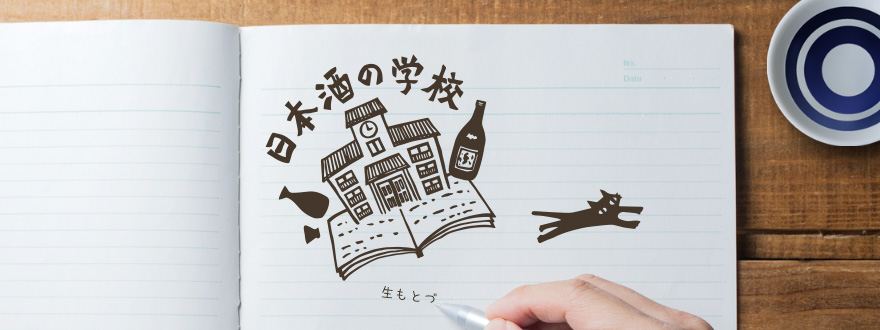 日本酒の学校
No.
Date
生もとづ